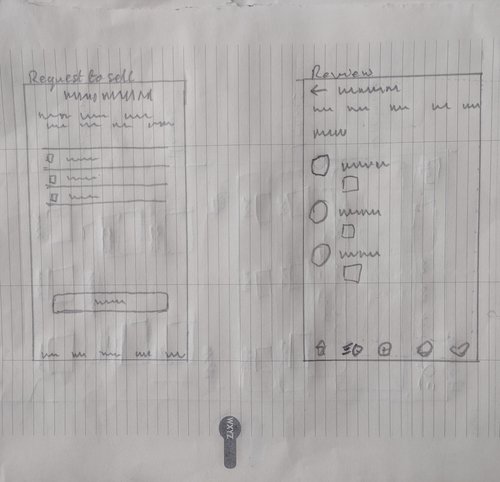 Request to sell
Review
WXYZ